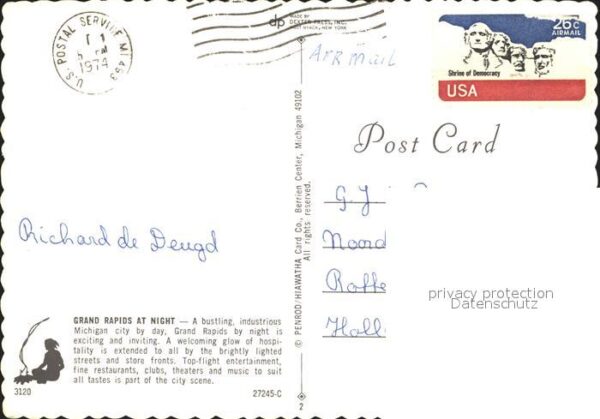 U.S. POSTAL SERVICE MI 493
1974
dp
MADE BY
DEXTER PRESS, INC.
WEST NYACK, NEW YORK
AIR mail
26c
AIRMAIL
Shrine of Democracy
USA
Post Card
G. J.
Noord
Rotte
Holl
Richard de Deugd
© PENROD/HIAWATHA Card Co., Berrien Center, Michigan 49102
All rights reserved.
privacy protection
Datenschutz
GRAND RAPIDS AT NIGHT — A bustling, industrious
Michigan city by day, Grand Rapids by night is
exciting and inviting. A welcoming glow of hospi-
tality is extended to all by the brightly lighted
streets and store fronts. Top-flight entertainment,
fine restaurants, clubs, theaters and music to suit
all tastes is part of the city scene.
3120
27245-C
2